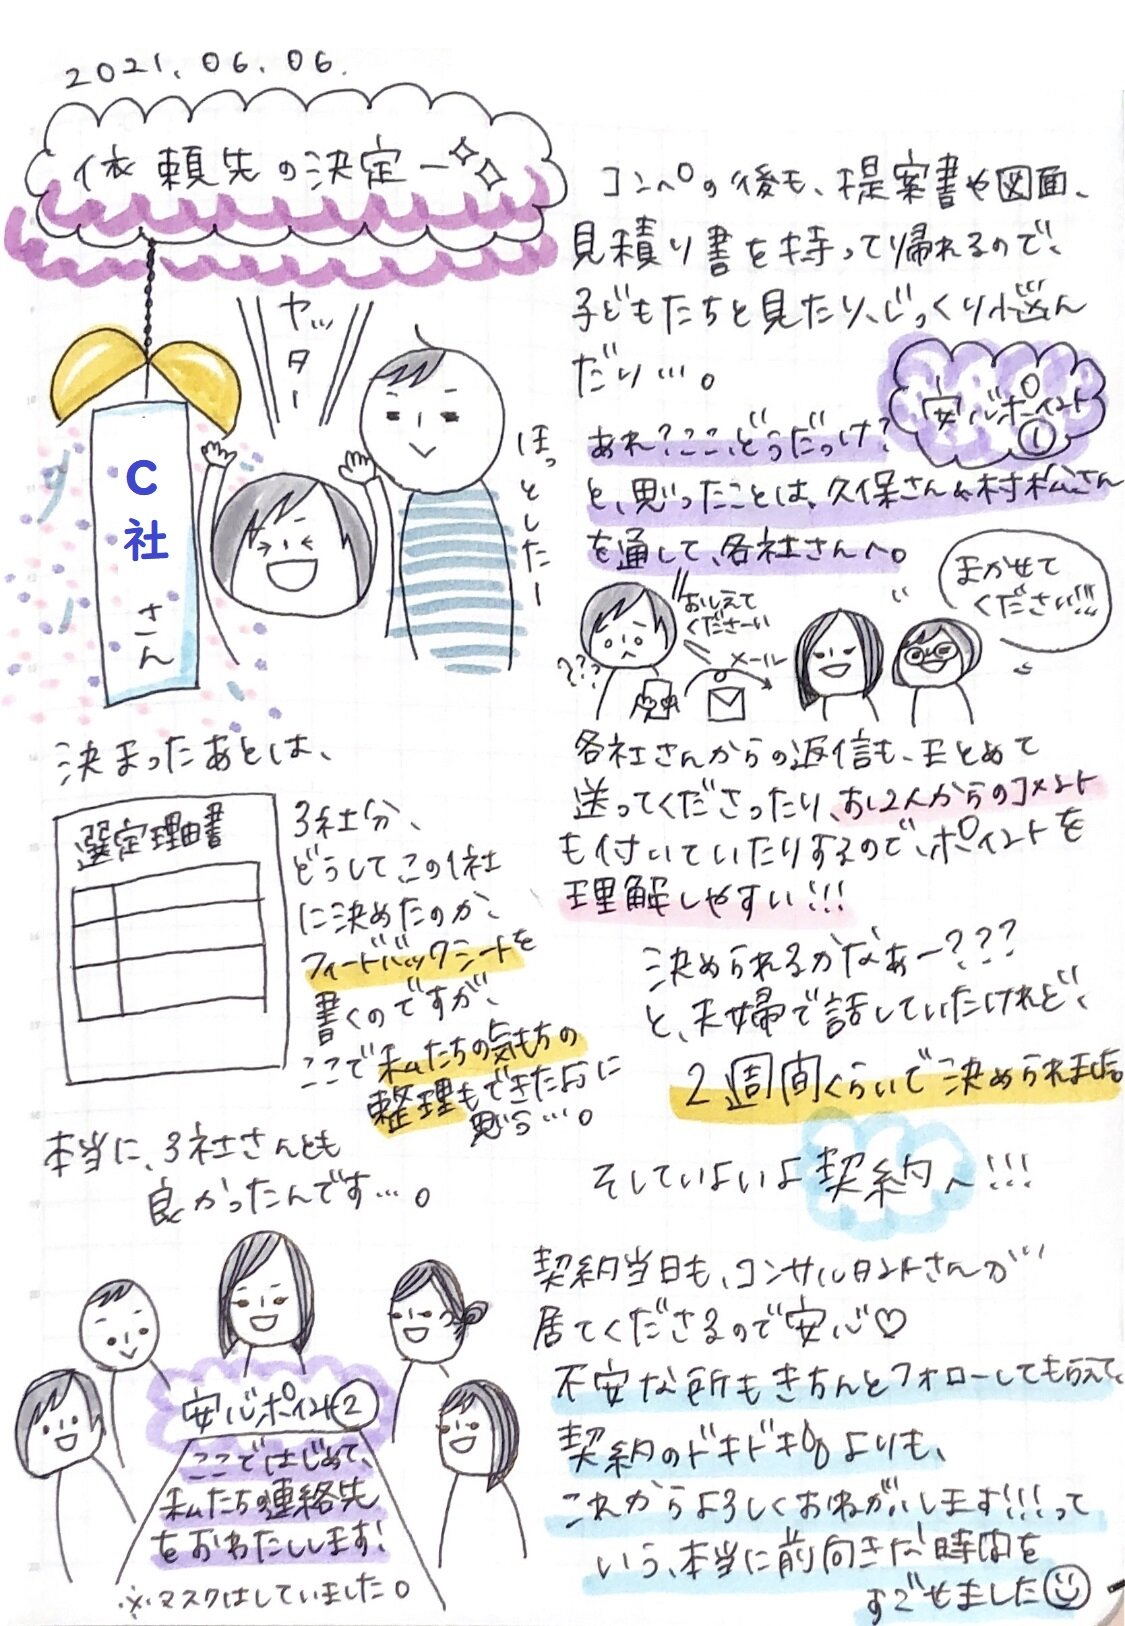 2021.06.06.
依頼先の決定ー
ヤッター
ほっとしたー
C社さん
決まったあとは、
選定理由書
3社分、
どうしてこの1社
に決めたのか、
フィードバックシートを
書くのですが、
ここで私たちの気もちの
整理もできたように
思う…。
本当に、3社さんとも
良かったんです…。
安心ポイント②
ここではじめて、
私たちの連絡先
をおわたしします!
※マスクはしていました。
コンペの後も、提案書や図面、
見積り書を持って帰れるので、
子どもたちと見たり、じっくり悩ん
だり…。
安心ポイント①
あれ?ここ、どうだっけ?
と、思ったことは、久保さん&村松さん
を通して、各社さんへ。
おしえて
くださーい
???
メール
まかせて
ください!!!
各社さんからの返信も、まとめて
送ってくださったり、お2人からのコメント
も付いていたりするので、ポイントを
理解しやすい!!!
決められるかなぁー???
と、夫婦で話していたけれど、
2週間くらいで決められました。
そしていよいよ契約へ!!!
契約当日も、コンサルタントさんが
居てくださるので安心♡
不安な所もきちんとフォローしてもらえて、
契約のドキドキよりも、
これからよろしくおねがいします!!!って
いう、本当に前向きな時間を
すごせました